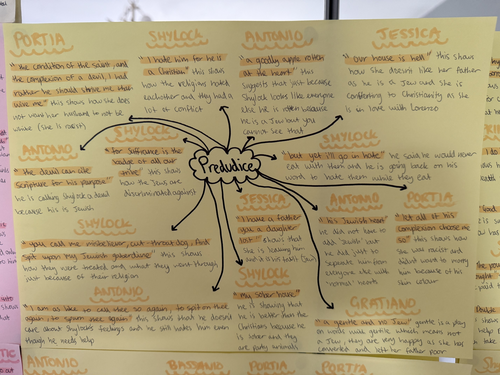 PORTIA
"the condition of the saint, and
the complexion of a devil, I had
rather he should shrive me than
wive me" this shows how she does
not want her husband to not be
white (she is racist)
SHYLOCK
"I hate him for he is
a Christian" this shows
how the religions hated
eachother and they had a
lot of conflict
ANTONIO
"a goodly apple rotten
at the heart" this
suggests that just because
Shylock looks like everyone
else he is rotten because
he is a Jew but you
cannot see that
JESSICA
"Our house is hell" this shows
how she doesn't like her father
as he is a Jew and she is
converting to Christianity as she
is in love with Lorenzo
ANTONIO
"the devil can cite
scripture for his purpose"
he is calling Shylock a devil
because he is Jewish
SHYLOCK
"for sufferance is the
badge of all our
tribe" this shows
how the Jews are
discriminated against
Predudice
SHYLOCK
"but yet i'll go in hate" he said he would never
eat with them and he is going back on his
word to hate them while they eat
SHYLOCK
"you call me misbeliever, cut-throat dog, And
spit upon my Jewish gaberdine" this shows
how they were treated and what they went through
just because of their religion
JESSICA
"I have a father
you a daughter
lost"
ANTONIO
"his Jewish heart"
he did not have to
add Jewish but
he did just to
separate him from
everyone else with
'normal' hearts
PORTIA
"let all of his
complexion choose me
so" this shows how
she was racist and
didn't want to marry
him because of his
skin colour
ANTONIO
"I am as like to call thee so again, to spit on thee
again, to spurn thee again" this shows that he doesn't
care about Shylock's feelings and he still hates him even
though he needs help
SHYLOCK
"My sober house"
he is showing that
he is better than the
Christians because he
is sober and they
are party animals
GRATIANO
"a gentle and no Jew" gentle is a play
on words with gentile which means not
a Jew, they are very happy as she has
converted and left her father poor
ANTONIO
BASSANIO
PORTIA
PORTIA